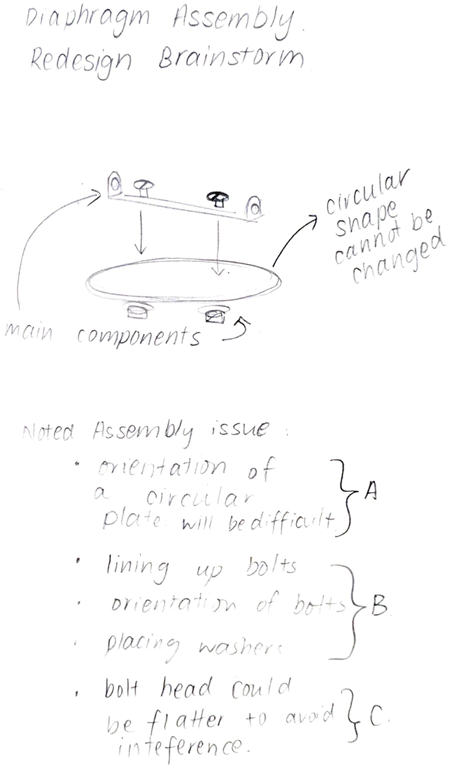 Diaphragm Assembly.
Redesign Brainstorm
circular
shape
cannot be
changed
main components
Noted Assembly issue:
• orientation of
a circular
plate will be difficult
A
• lining up bolts
• orientation of bolts
B
• placing washers
• bolt head could
be flatter to avoid
C.
inteference.